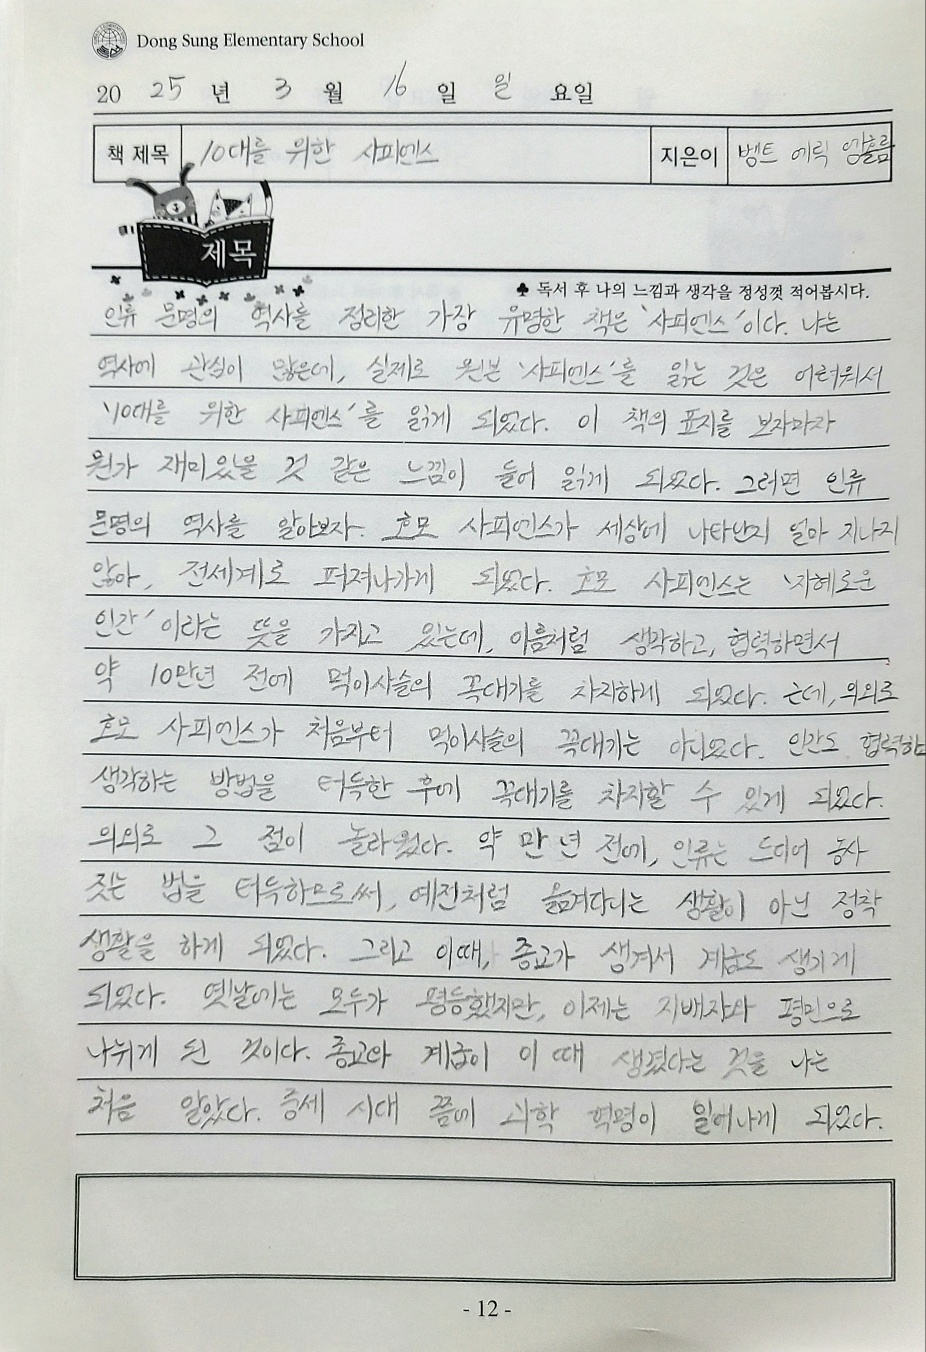 Dong Sung Elementary School
2025년 3월 16일 일요일
책 제목 10대를 위한 사피엔스 지은이 벵트 에릭 엥홀름
제목
♣ 독서 후 나의 느낌과 생각을 정성껏 적어봅시다.
인류 문명의 역사를 정리한 가장 유명한 책은 '사피엔스'이다. 나는
역사에 관심이 많은데, 실제로 원본 '사피엔스'를 읽는 것은 어려워서
'10대를 위한 사피엔스'를 읽게 되었다. 이 책의 표지를 보자마자
뭔가 재미있을 것 같은 느낌이 들어 읽게 되었다. 그러면 인류
문명의 역사를 알아보자. 호모 사피엔스가 세상에 나타난지 얼마 지나지
않아, 전세계로 퍼져나가게 되었다. 호모 사피엔스는 '지혜로운
인간'이라는 뜻을 가지고 있는데, 이름처럼 생각하고, 협력하면서
약 10만년 전에 먹이사슬의 꼭대기를 차지하게 되었다. 근데, 의외로
호모 사피엔스가 처음부터 먹이사슬의 꼭대기는 아니었다. 인간도 협력하고
생각하는 방법을 터득한 후에 꼭대기를 차지할 수 있게 되었다.
의외로 그 점이 놀라웠다. 약 만 년 전에, 인류는 드디어 농사
짓는 법을 터득하므로써, 예전처럼 옮겨다니는 생활이 아닌 정착
생활을 하게 되었다. 그리고 이때, 종교가 생겨서 계급도 생기게
되었다. 옛날에는 모두가 평등했지만, 이제는 지배자와 평민으로
나뉘게 된 것이다. 종교와 계급이 이 때 생겼다는 것을 나는
처음 알았다. 중세 시대 쯤에 과학 혁명이 일어나게 되었다.
- 12 -